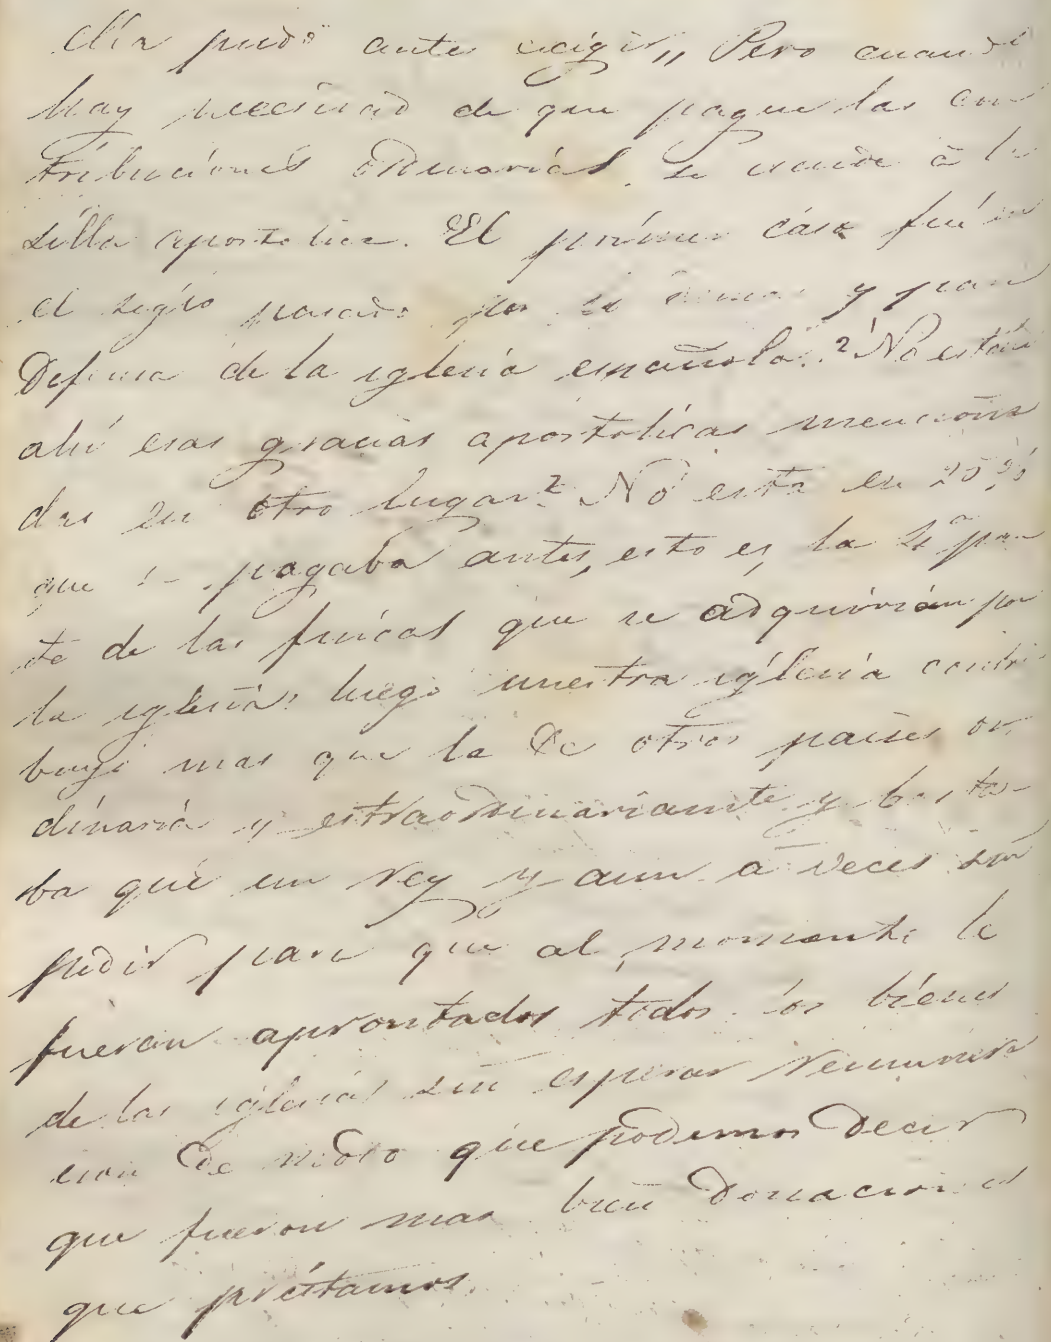 pudo ante exigir,, Pero cuando
hay necesidad de que pague las con
tribuciones ordinarias se acude á la
silla apostolica. El primer caso fué en
el siglo pasado por y para
Defensa de la iglesia española. ?No están
ahí esas gracias apostolicas menciona
das en otro lugar? No está el 25 %
que se pagaba antes, esto es, la 4ª par
te de las fincas que se adquirian por
la iglesia? luego nuestra iglesia contri
buyó mas que la de otros paises or
dinaria y estraordinariamte y basta-
ba que un rey y aun a veces sin
pedir para que al momento le
fueran aprontados todos los bienes
de las iglesias sin esperar remunera
cion de modo que podemos decir
que fueron mas bien donaciones
que préstamos.